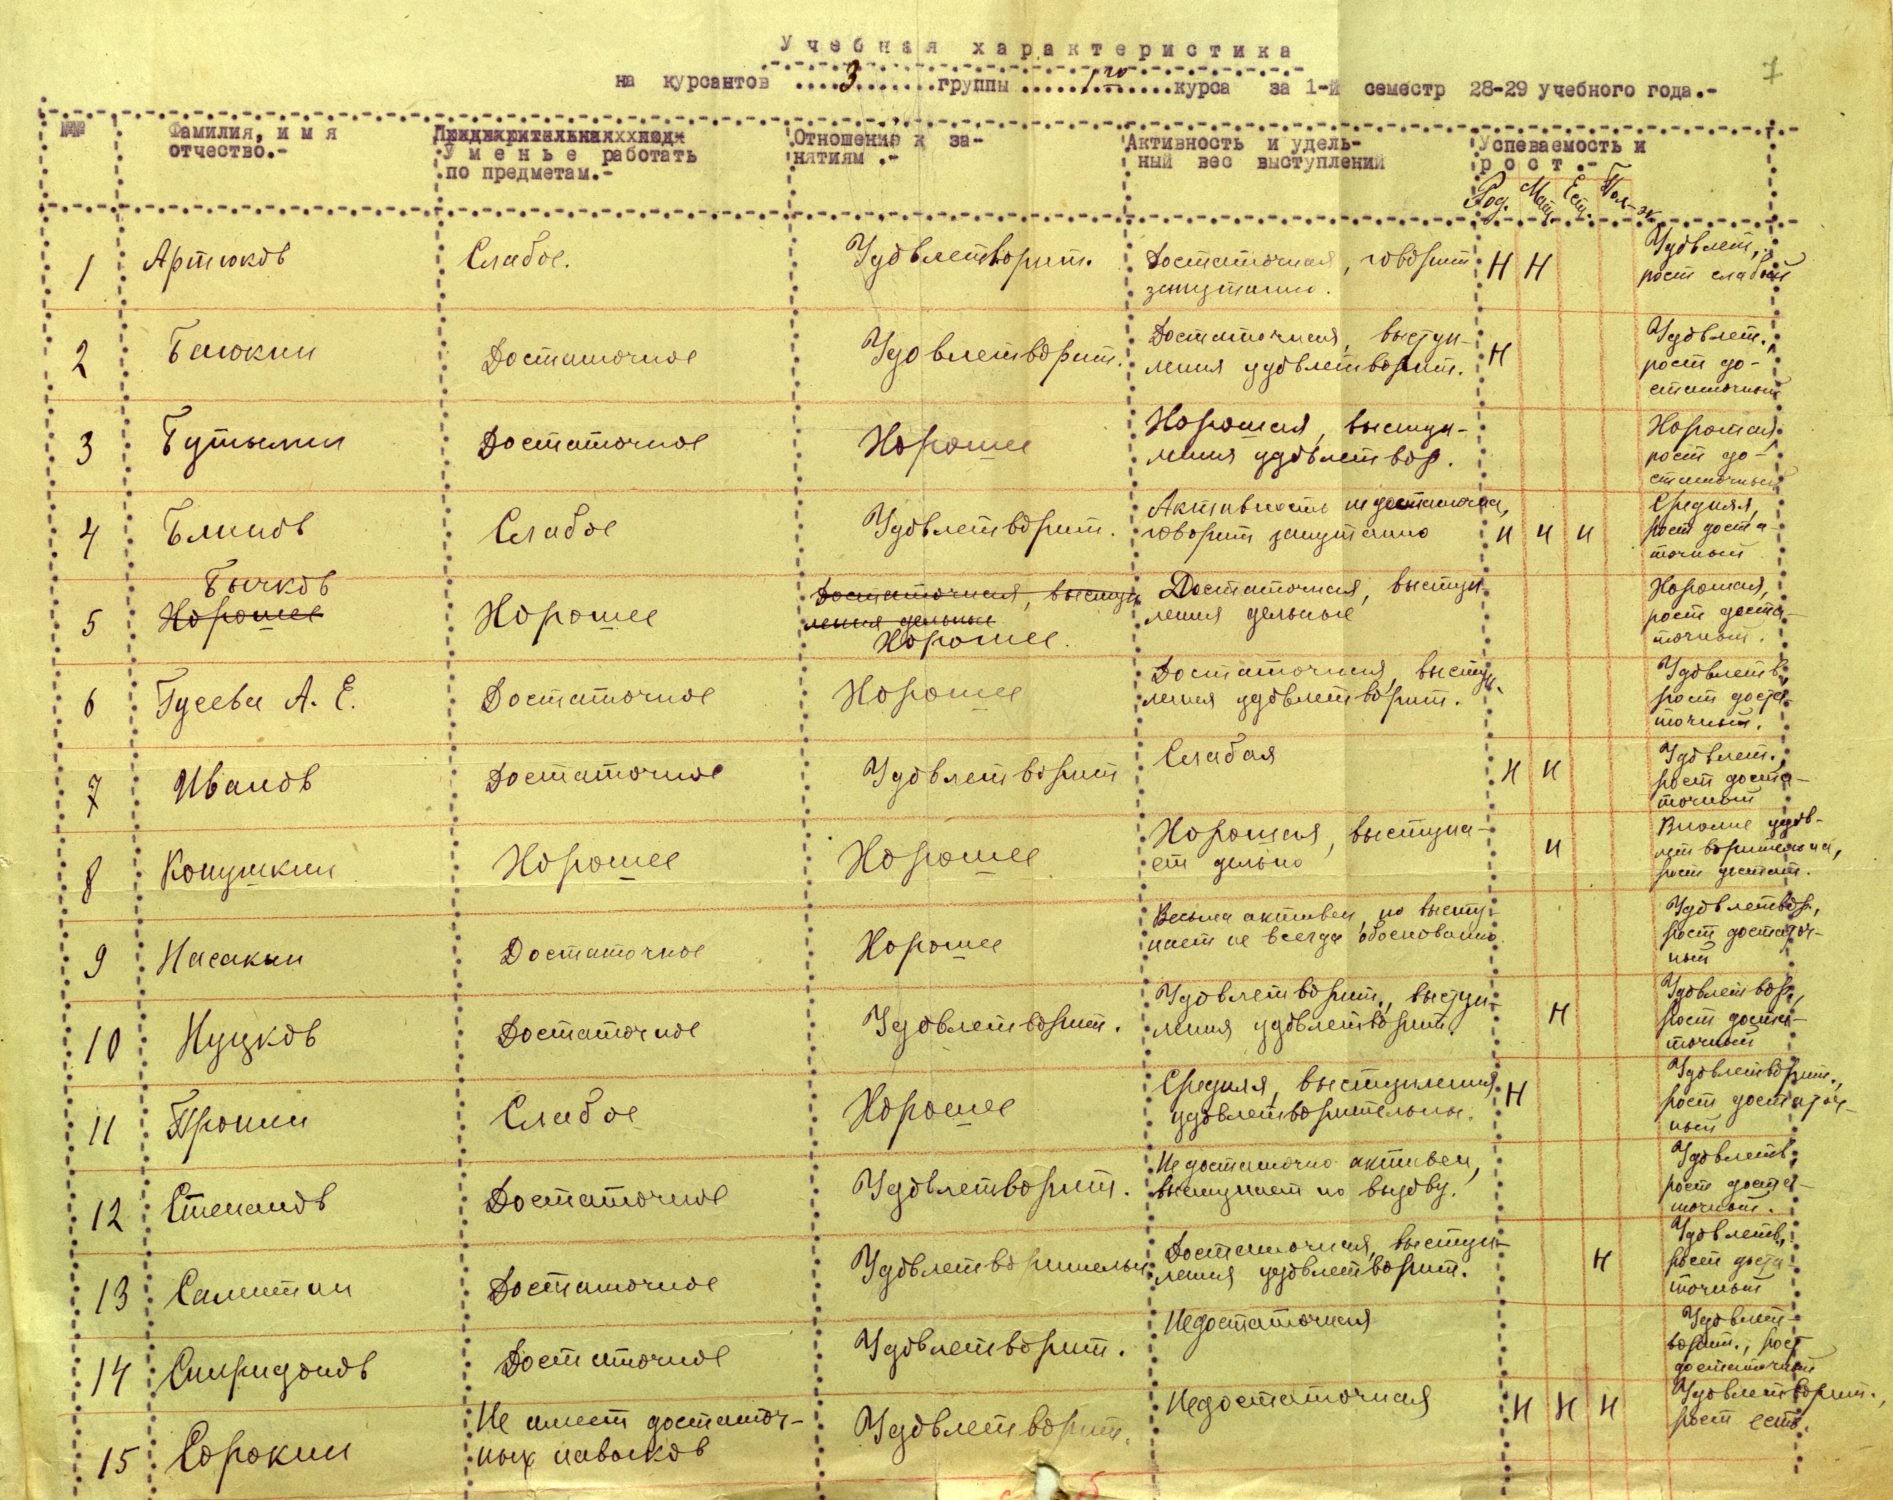 7
Учебная характеристика
на курсантов 3 группы 1го курса за 1-й семестр 28-29 учебного года.-
№№
Фамилия, имя
отчество.-
Уменье работать
по предметам.-
Отношение к за-
нятиям.-
Активность и удель-
ный вес выступлений
Успеваемость и
рост.-
Род. Мат. Ест.
1 Артюков Слабое. Удовлетворит. Достаточная, говорит
запутанно.
Н Н Удовлет.,
рост слабый
2 Баюкин Достаточное Удовлетворит. Достаточная, выступ-
ления удовлетворит.
Н Удовлет.,
рост до-
статочный
3 Бутылин Достаточное Хорошее Хорошая, выступ-
ления удовлетвор.
Хорошая,
рост до-
статочный
4 Блинов Слабое Удовлетворит. Активность недостаточна,
говорит запутанно
Н Н Н Средняя,
рост доста-
точный
5 Бычков
Хорошее
Хорошее Достаточная, выступ
ления дельные
Хорошее.
Достаточная, выступ
ления дельные
Хорошая,
рост доста-
точный.
6 Гусева А. Е. Достаточное Хорошее Достаточная, выступ.
ления удовлетворит.
Удовлетв.,
рост доста-
точный.
7 Иванов Достаточное Удовлетворит Слабая
Н Н Удовлет.,
рост доста-
точный
8 Копушкин Хорошее Хорошее Хорошая, выступа-
ет дельно
Н Вполне удов-
летворительная,
рост достат.
9 Насакин Достаточное Хорошее Весьма активен, но высту-
пает не всегда обоснованно.
Удовлетвор.,
рост достаточ-
ный
10 Нуцков Достаточное Удовлетворит. Удовлетворит., выступ-
ления удовлетворит.
Н Удовлетвор.,
рост доста-
точный
11 Пронин Слабое Хорошее Средняя, выступления
удовлетворительны.
Н Удовлетворит.,
рост достаточ-
ный
12 Степанов Достаточное Удовлетворит. Недостаточно активен,
выступает по вызову.
Удовлетв.,
рост доста-
точный.
13 Салитан Достаточное Удовлетворительн Достаточная, выступ-
ления удовлетворит.
Н Удовлетв.,
рост доста
точный
14 Спиридонов Достаточное Удовлетворит. Недостаточная
Удовлет-
ворит., рост
достаточный
15 Сорокин Не имеет достаточ-
ных навыков
Удовлетворит. Недостаточная
Н Н Н Удовлетворит.,
рост есть.